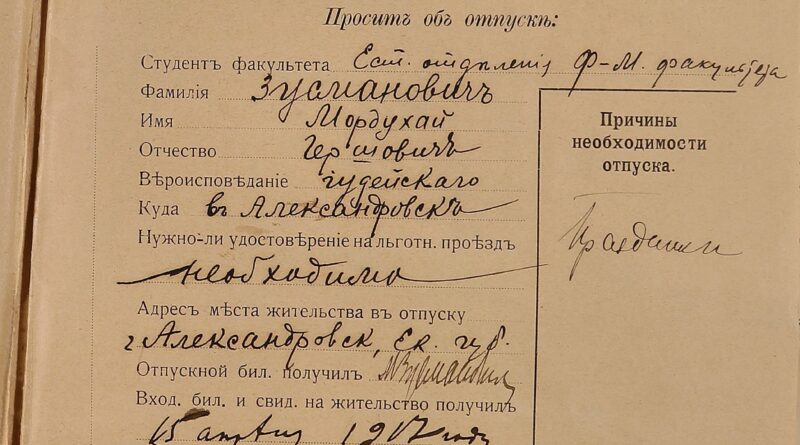 Проситъ объ отпускѣ:
Студентъ факультета Ест. отдѣленія Ф-М. факультета
Фамилія Зусмановичъ
Имя Мордухай
Отчество Гершовичъ
Вѣроисповѣданіе іудейскаго
Куда въ Александровскъ
Нужно-ли удостовѣреніе на льготн. проѣздъ
необходимо
Адресъ мѣста жительства въ отпуску
г Александровск, Ек. губ.
Отпускной бил. получилъ
Вход. бил. и свид. на жительство получилъ
15 апрѣля 1917 году
Причины
необходимости
отпуска.
Праздники